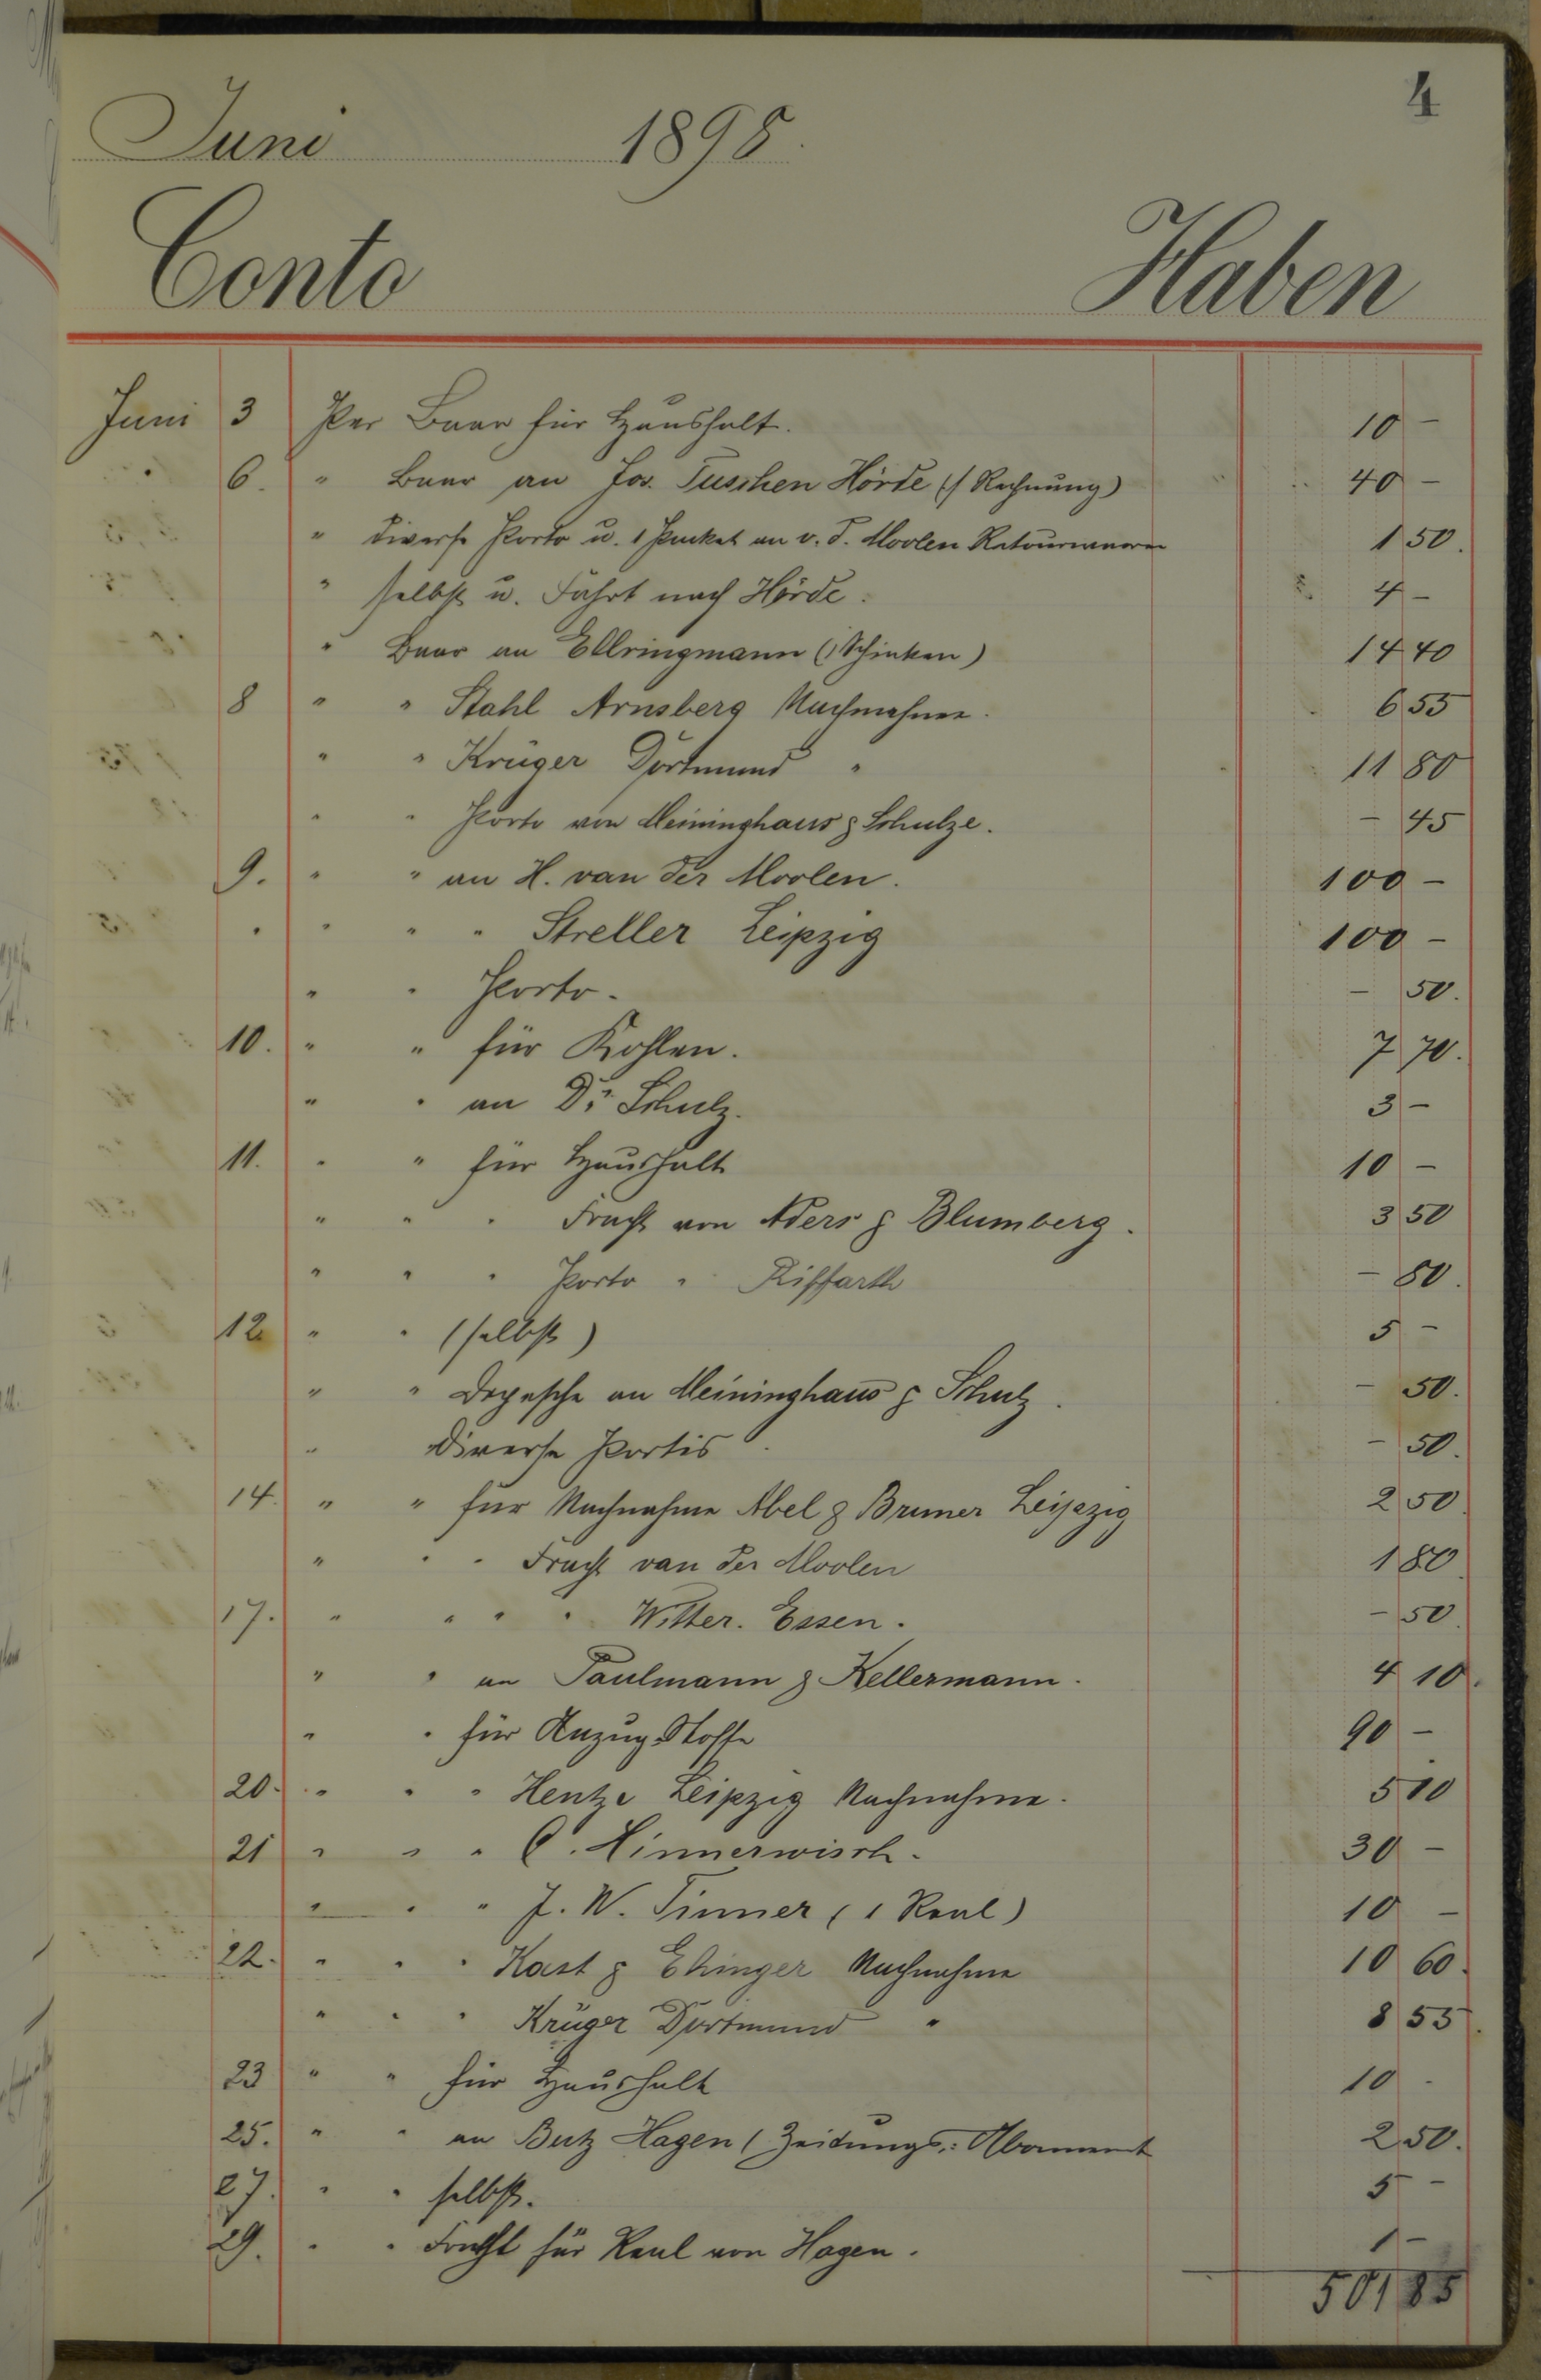 4
Juni 1898.
Conto Haben
Juni 3 Per Baar für Haushalt. 10 -
" 6. " Baar an Jos. Tuschen Hörde (/ Rechnung) 40 -
" diverse Porto u. 1 Packet an v. d. Moolen Retourwaren 1 50.
" selbst u. Fahrt nach Hörde. 4 -
" Baar an Ellringmann (1 Schinken) 14 40
8 " " Stahl Arnsberg Nachnahme. 6 55
" " Krüger Dortmund " 11 80
" " Porto von Meininghaus & Schulze. - 45
9. " " an H. van der Moolen. 100 -
" " " " Streller Leipzig 100 -
" " Porto. - 50.
10. " " für Kohlen. 7 70.
" " an Dr. Schulz. 3 -
11. " " für Haushalt 10 -
" " " Fracht von Aders & Blumberg. 3 50
" " " Porto " Riffarth - 80.
12 " " (selbst) 5 -
" " Depesche an Meininghaus & Schulz. - 50.
" diverse Portis. - 50.
14. " " für Nachnahme Abel & Brunner Leipzig 2 50
" " " Fracht van der Moolen 1 80
17. " " " " Witter. Essen. - 50.
" " an Paulmann & Kellermann. 4 10.
" " für Anzug Stoffe 90 -
20. " " " Hentze Leipzig Nachnahme. 5 10
21 " " " C. Hinnerwisch. 30 -
" " " J. W. Tinner (1 Reul) 10 -
22. " " " Kast & Ehinger Nachnahme 10 60.
" " " Krüger Dortmund " 8 55.
23 " " für Haushalt 10 -
25. " " an Butz Hagen (Zeitungs-Abonnement 2 50.
27. " " selbst. 5 -
29. " " Fracht für Reul von Hagen. 1 -
501 85